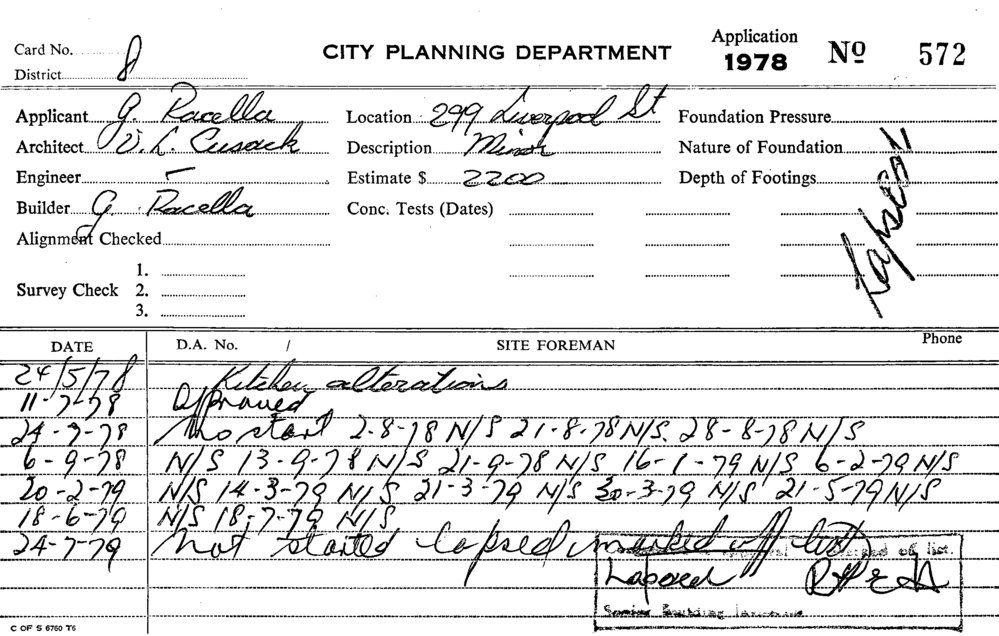 Card No. 8
CITY PLANNING DEPARTMENT
Application
1978 Nº 572
District
Applicant G. Racella
Location 299 Liverpool St
Foundation Pressure
Architect V. L. Cusack
Description Minor
Nature of Foundation
Engineer –
Estimate $ 2200
Depth of Footings
Builder G. Racella
Conc. Tests (Dates)
Lapsed
Alignment Checked
1.
Survey Check 2.
3.
DATE D.A. No. / SITE FOREMAN Phone
24/5/78 Kitchen alterations
11-7-78 Approved
24-7-78 No start 2-8-78 N/S 21-8-78 N/S. 28-8-78 N/S
6-9-78 N/S 13-9-78 N/S 21-9-78 N/S 16-1-79 N/S 6-2-79 N/S
20-2-79 N/S 14-3-79 N/S 21-3-79 N/S 30-3-79 N/S 21-5-79 N/S
18-6-79 N/S 18-7-79 N/S
24-7-79 Not started lapsed marked off list
of list
Lapsed
Senior Building
C OF S 6760 T6